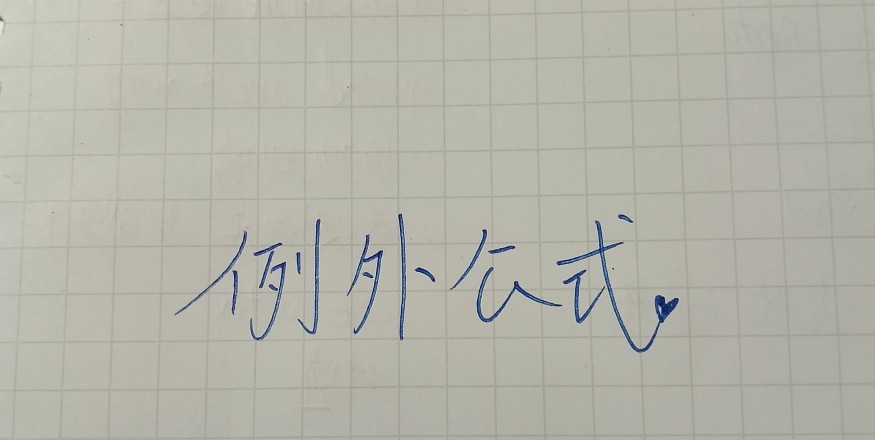 例外公式